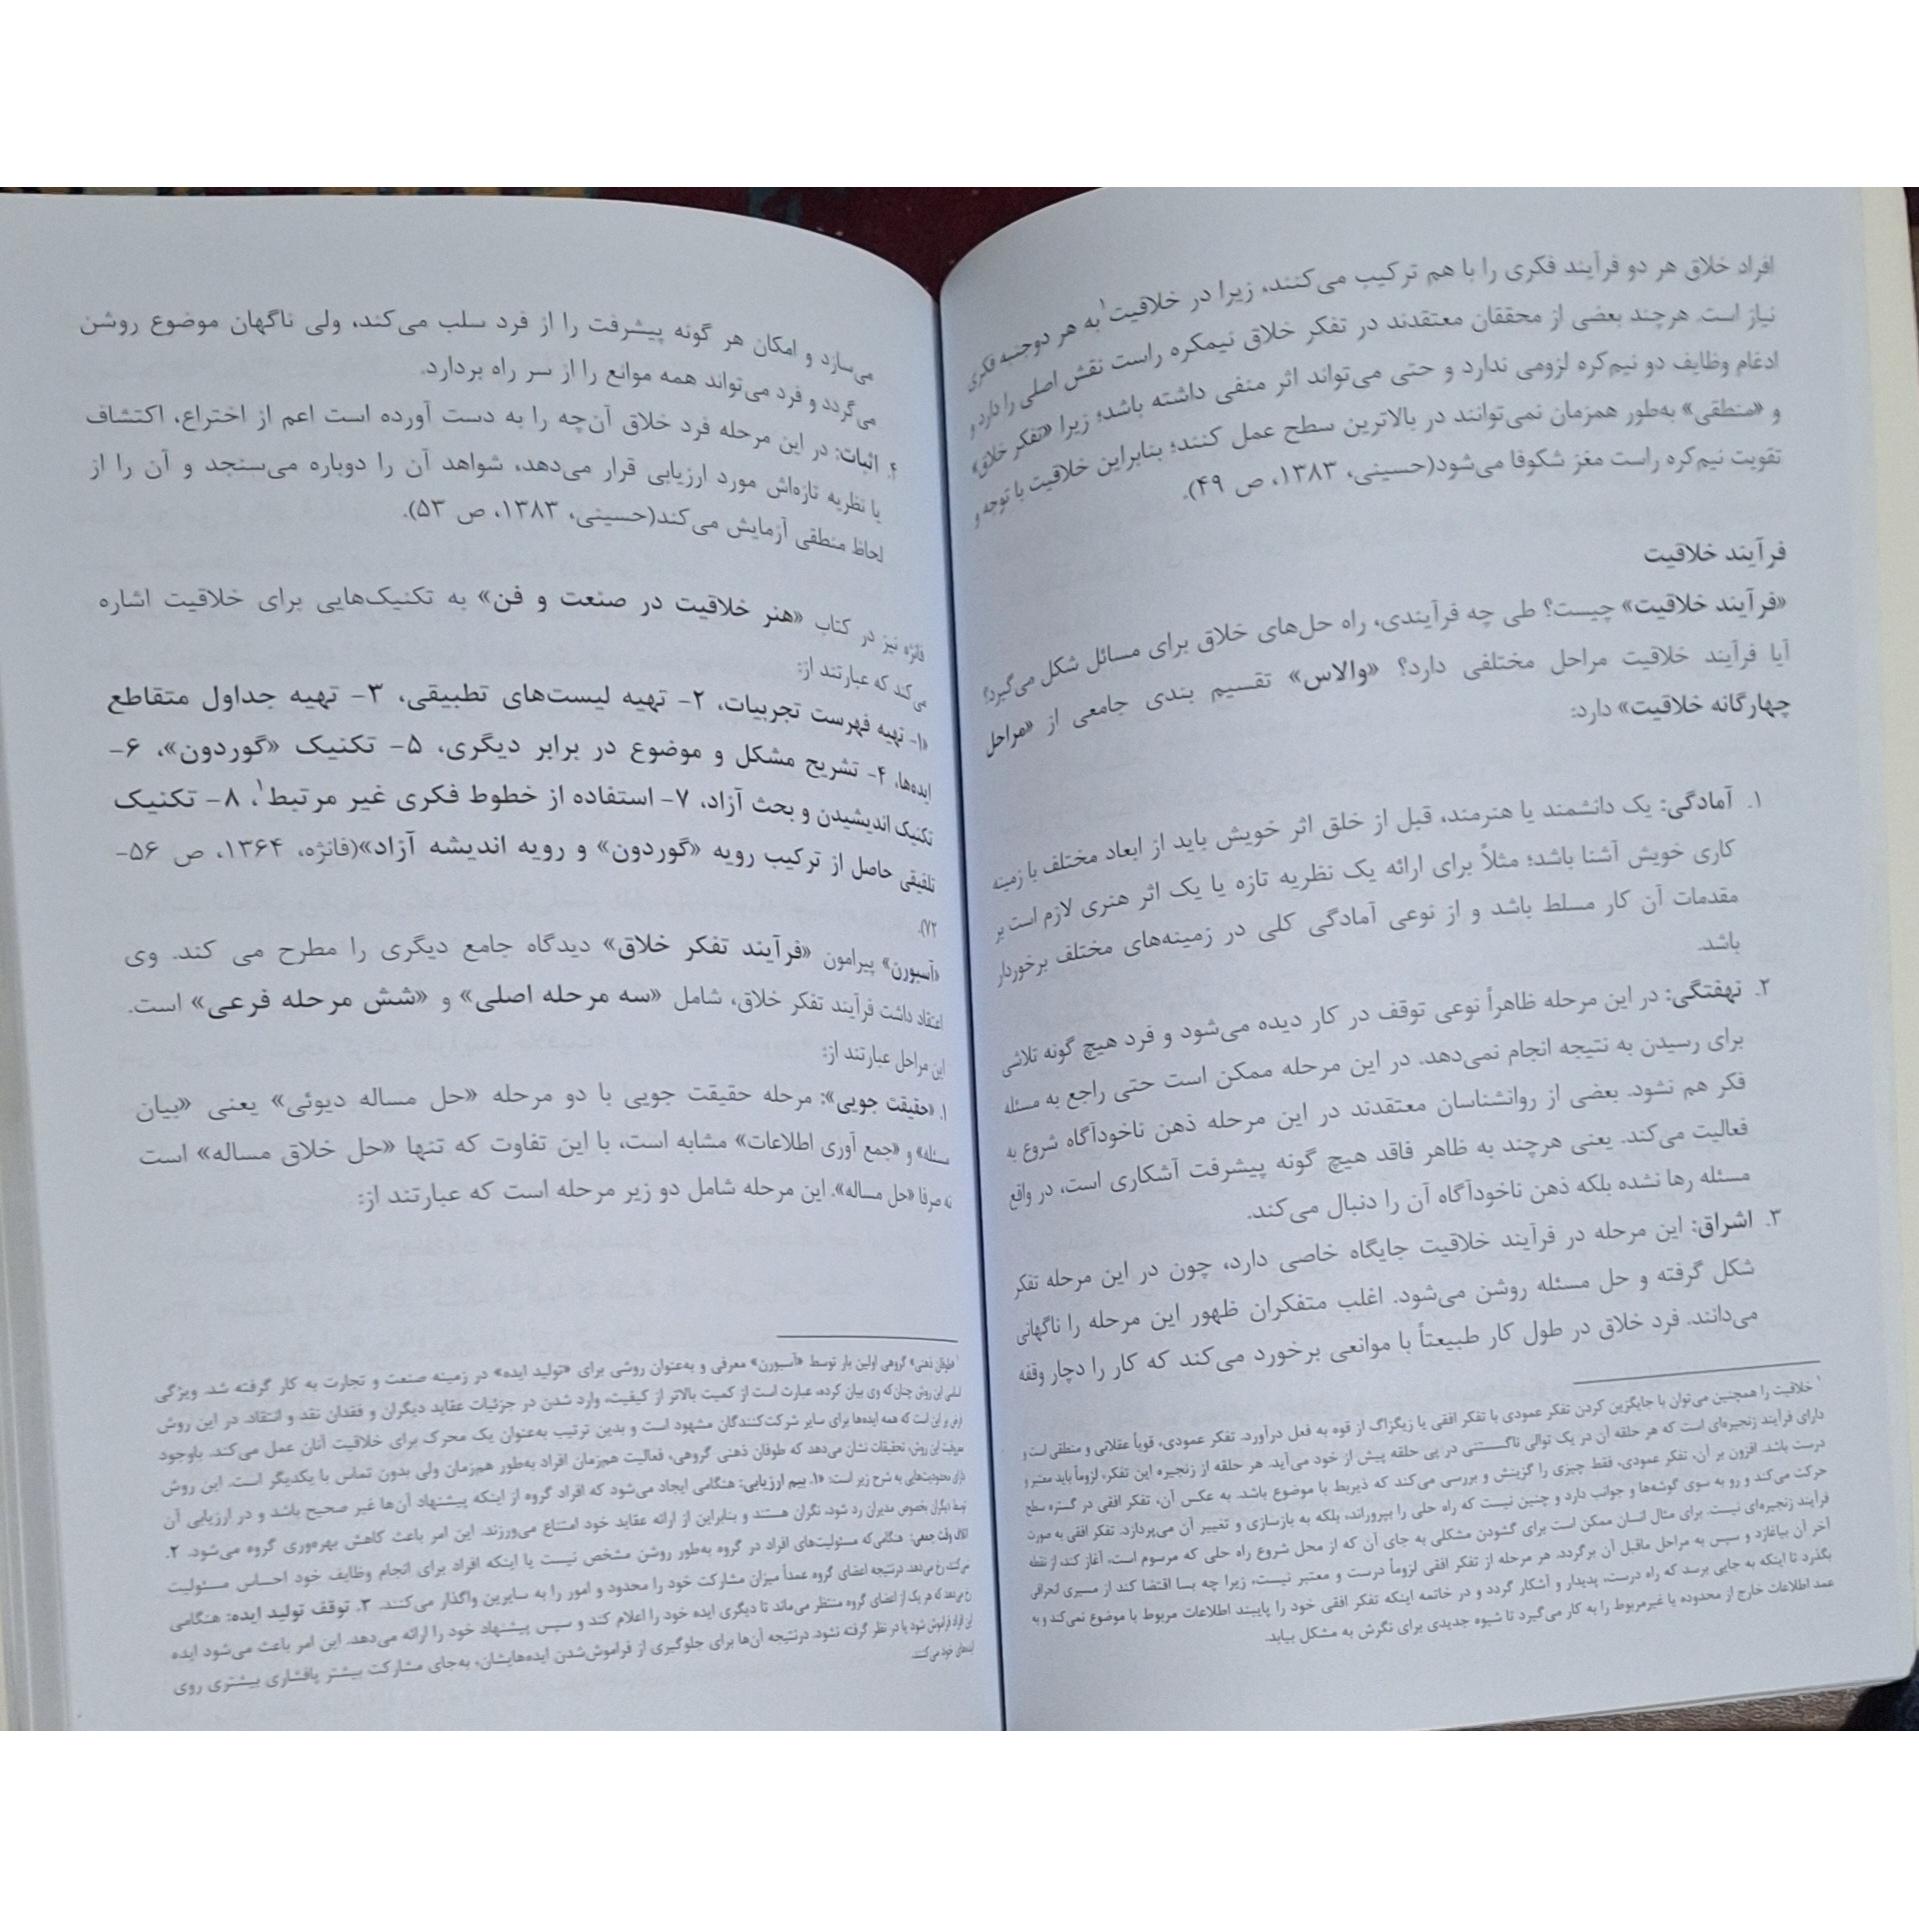 افراد خلاق هر دو فرآیند فکری را با هم ترکیب می‌کنند، زیرا در خلاقیت۱ به هر دو جنبه فکری
نیاز است. هرچند بعضی از محققان معتقدند در تفکر خلاق نیمکره راست نقش اصلی را دارد و
ادغام وظایف دو نیم‌کره لزومی ندارد و حتی می‌تواند اثر منفی داشته باشد؛ زیرا «تفکر خلاق»
و «منطقی» به‌طور همزمان نمی‌توانند در بالاترین سطح عمل کنند؛ بنابراین خلاقیت با توجه و
تقویت نیم‌کره راست مغز شکوفا می‌شود(حسینی، ۱۳۸۳، ص ۴۹).
فرآیند خلاقیت
«فرآیند خلاقیت» چیست؟ طی چه فرآیندی، راه حل‌های خلاق برای مسائل شکل می‌گیرد؟
آیا فرآیند خلاقیت مراحل مختلفی دارد؟ «والاس» تقسیم بندی جامعی از «مراحل
چهارگانه خلاقیت» دارد:
۱. آمادگی: یک دانشمند یا هنرمند، قبل از خلق اثر خویش باید از ابعاد مختلف با زمینه
کاری خویش آشنا باشد؛ مثلاً برای ارائه یک نظریه تازه یا یک اثر هنری لازم است بر
مقدمات آن کار مسلط باشد و از نوعی آمادگی کلی در زمینه‌های مختلف برخوردار
باشد.
۲. نهفتگی: در این مرحله ظاهراً نوعی توقف در کار دیده می‌شود و فرد هیچ گونه تلاشی
برای رسیدن به نتیجه انجام نمی‌دهد. در این مرحله ممکن است حتی راجع به مسئله
فکر هم نشود. بعضی از روانشناسان معتقدند در این مرحله ذهن ناخودآگاه شروع به
فعالیت می‌کند. یعنی هرچند به ظاهر فاقد هیچ گونه پیشرفت آشکاری است، در واقع
مسئله رها نشده بلکه ذهن ناخودآگاه آن را دنبال می‌کند.
۳. اشراق: این مرحله در فرآیند خلاقیت جایگاه خاصی دارد، چون در این مرحله تفکر
شکل گرفته و حل مسئله روشن می‌شود. اغلب متفکران ظهور این مرحله را ناگهانی
می‌دانند. فرد خلاق در طول کار طبیعتاً با موانعی برخورد می‌کند که کار را دچار وقفه
۱ خلاقیت را همچنین می‌توان با جایگزین کردن تفکر عمودی با تفکر افقی یا زیگزاگ از قوه به فعل درآورد. تفکر عمودی، قویاً عقلانی و منطقی است و
دارای فرآیند زنجیره‌ای است که هر حلقه آن در یک توالی ناگسستنی در پی حلقه پیش از خود می‌آید. هر حلقه از زنجیره این تفکر، لزوماً باید معتبر و
درست باشد. افزون بر آن، تفکر عمودی، فقط چیزی را گزینش و بررسی می‌کند که ذیربط با موضوع باشد. به عکس آن، تفکر افقی در گستره سطح
حرکت می‌کند و رو به سوی گوشه‌ها و جوانب دارد و چنین نیست که راه حلی را بپروراند، بلکه به بازسازی و تغییر آن می‌پردازد. تفکر افقی به صورت
فرآیند زنجیره‌ای نیست. برای مثال انسان ممکن است برای گشودن مشکلی به جای آن که از محل شروع راه حلی که مرسوم است، آغاز کند، از نقطه
آخر آن بیاغازد و سپس به مراحل ماقبل آن برگردد. هر مرحله از تفکر افقی لزوماً درست و معتبر نیست، زیرا چه بسا اقتضا کند از مسیری انحرافی
بگذرد تا اینکه به جایی برسد که راه درست، پدیدار و آشکار گردد و در خاتمه اینکه تفکر افقی خود را پایبند اطلاعات مربوط با موضوع نمی‌کند و به
عمد اطلاعات خارج از محدوده یا غیرمربوط را به کار می‌گیرد تا شیوه جدیدی برای نگرش به مشکل بیابد.
می‌سازد و امکان هر گونه پیشرفت را از فرد سلب می‌کند، ولی ناگهان موضوع روشن
می‌گردد و فرد می‌تواند همه موانع را از سر راه بردارد.
۴. اثبات: در این مرحله فرد خلاق آن‌چه را به دست آورده است اعم از اختراع، اکتشاف
یا نظریه تازه‌اش مورد ارزیابی قرار می‌دهد، شواهد آن را دوباره می‌سنجد و آن را از
لحاظ منطقی آزمایش می‌کند(حسینی، ۱۳۸۳، ص ۵۳).
فانژه نیز در کتاب «هنر خلاقیت در صنعت و فن» به تکنیک‌هایی برای خلاقیت اشاره
می‌کند که عبارتند از:
«۱- تهیه فهرست تجربیات، ۲- تهیه لیست‌های تطبیقی، ۳- تهیه جداول متقاطع
ایده‌ها، ۴- تشریح مشکل و موضوع در برابر دیگری، ۵- تکنیک «گوردون»، ۶-
تکنیک اندیشیدن و بحث آزاد، ۷- استفاده از خطوط فکری غیر مرتبط۱، ۸- تکنیک
تلفیقی حاصل از ترکیب رویه «گوردون» و رویه اندیشه آزاد»(فانژه، ۱۳۶۴، ص ۵۶-
۷۲).
«آسبورن» پیرامون «فرآیند تفکر خلاق» دیدگاه جامع دیگری را مطرح می کند. وی
اعتقاد داشت فرآیند تفکر خلاق، شامل «سه مرحله اصلی» و «شش مرحله فرعی» است.
این مراحل عبارتند از:
۱. «حقیقت جویی»: مرحله حقیقت جویی با دو مرحله «حل مساله دیوئی» یعنی «بیان
مسئله» و «جمع آوری اطلاعات» مشابه است، با این تفاوت که تنها «حل خلاق مساله» است
نه صرفا «حل مساله». این مرحله شامل دو زیر مرحله است که عبارتند از:
۱ «طوفان ذهنی» گروهی اولین بار توسط «آسبورن» معرفی و به‌عنوان روشی برای «تولید ایده» در زمینه صنعت و تجارت به کار گرفته شد. ویژگی
اصلی این روش چنان‌که وی بیان کرده، عبارت است از کمیت بالاتر از کیفیت، وارد شدن در جزئیات عقاید دیگران و فقدان نقد و انتقاد. در این روش
فرض بر این است که همه ایده‌ها برای سایر شرکت‌کنندگان مشهود است و بدین ترتیب به‌عنوان یک محرک برای خلاقیت آنان عمل می‌کند. باوجود
معروفیت این روش، تحقیقات نشان می‌دهد که طوفان ذهنی گروهی، فعالیت هم‌زمان افراد به‌طور هم‌زمان ولی بدون تماس با یکدیگر است. این روش
دارای محدودیت‌هایی به شرح زیر است: «۱. بیم ارزیابی: هنگامی ایجاد می‌شود که افراد گروه از اینکه پیشنهاد آن‌ها غیر صحیح باشد و در ارزیابی آن
توسط دیگران بخصوص مدیران رد شود، نگران هستند و بنابراین از ارائه عقاید خود امتناع می‌ورزند. این امر باعث کاهش بهره‌وری گروه می‌شود. ۲.
اتلاف وقت جمعی: هنگامی‌که مسئولیت‌های افراد در گروه به‌طور روشن مشخص نیست یا اینکه افراد برای انجام وظایف خود احساس مسئولیت
نمی‌کنند، رخ می‌دهد. درنتیجه اعضای گروه عمداً میزان مشارکت خود را محدود و امور را به سایرین واگذار می‌کنند. ۳. توقف تولید ایده: هنگامی
رخ می‌دهد که هر یک از اعضای گروه منتظر می‌ماند تا دیگری ایده خود را اعلام کند و سپس پیشنهاد خود را ارائه می‌دهد. این امر باعث می‌شود ایده
این افراد فراموش شود یا در نظر گرفته نشود. درنتیجه آن‌ها برای جلوگیری از فراموش‌شدن ایده‌هایشان، به‌جای مشارکت بیشتر پافشاری بیشتری روی
ایده‌های خود می‌کنند.